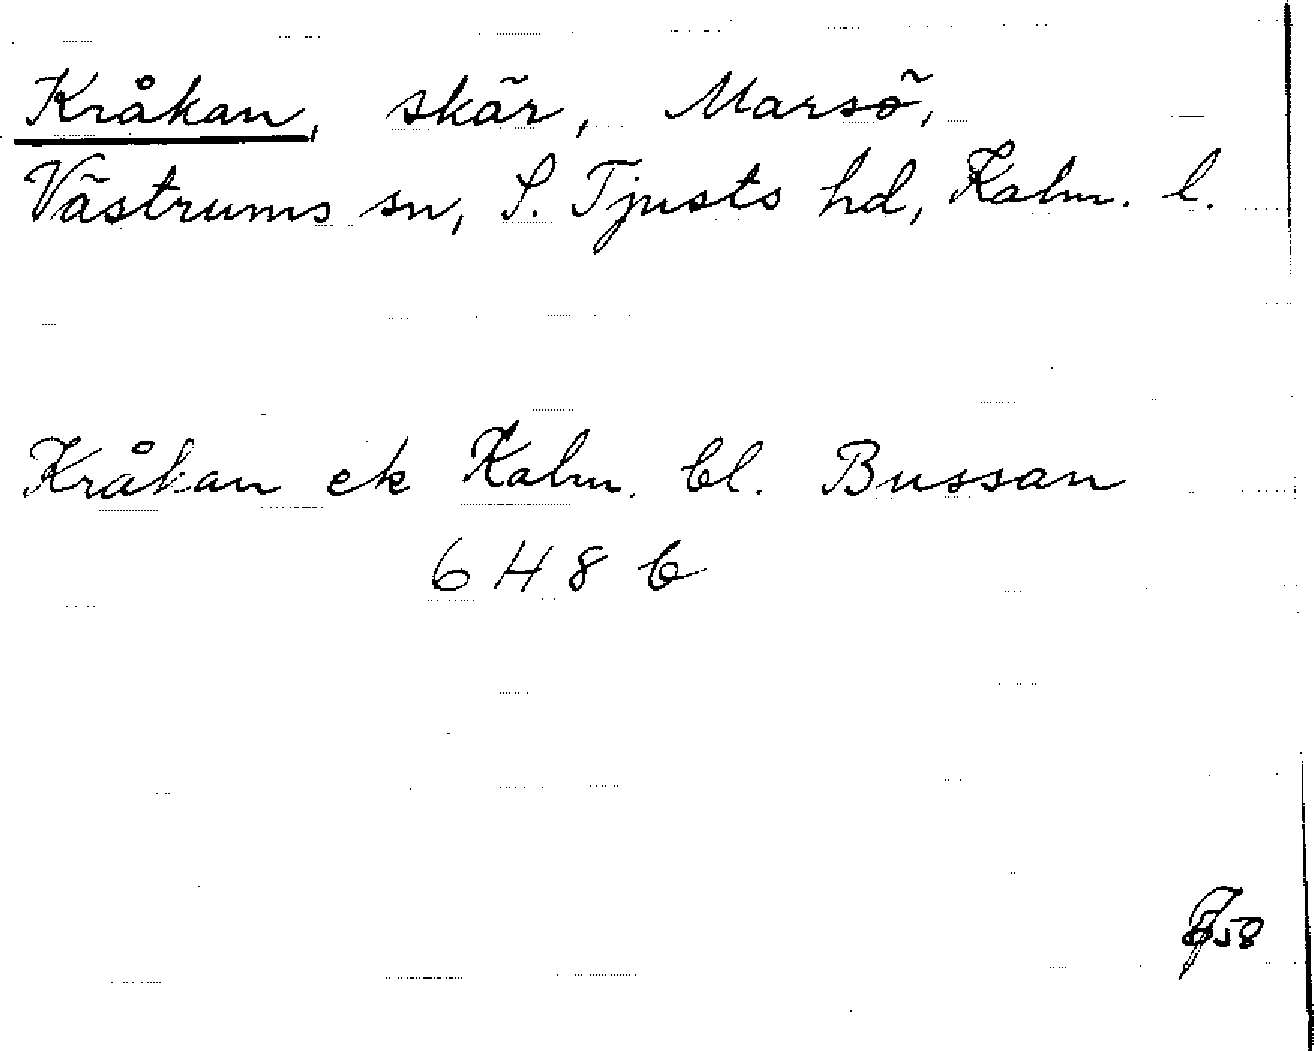 Kråkan, skär, Marsö,
Västrums sn, S. Tjusts hd, Kalm. l.
Kråkan ek Kalm. bl. Bussan
6 H 8 b
58